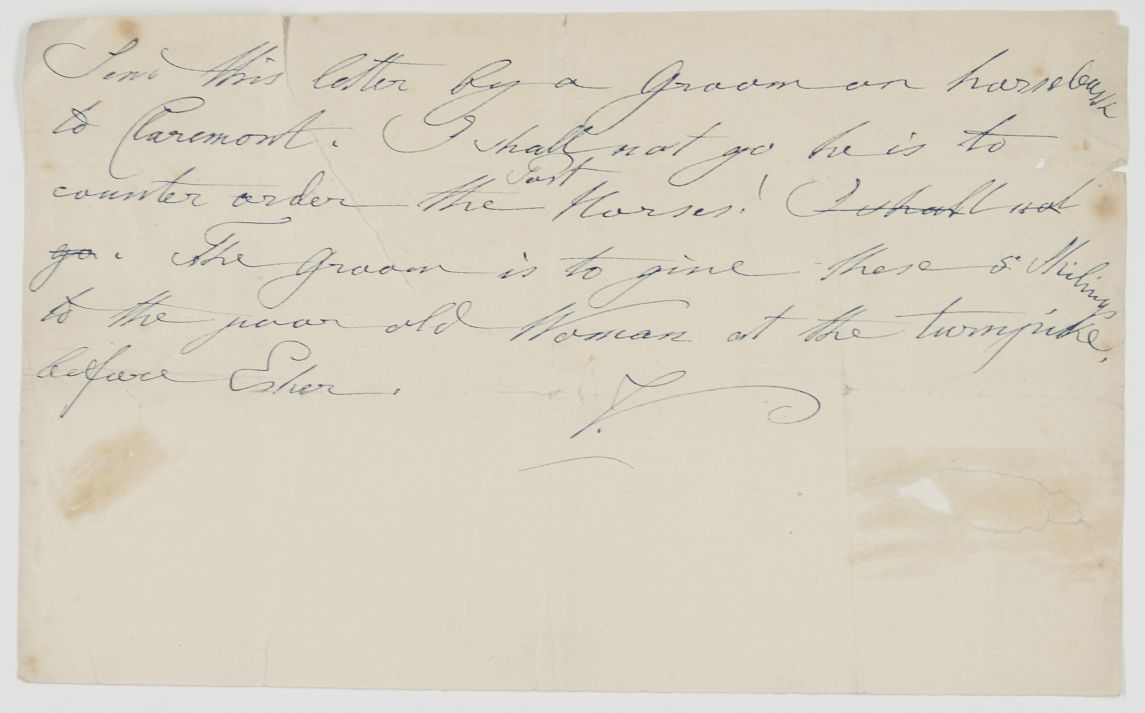 Send this letter by a Groom on horseback
to Claremont. I shall not go he is to
counter order the Post Horses! I shall not
go. The Groom is to give these 5 Shilings
to the poor old Woman at the turnpike,
before Esher.